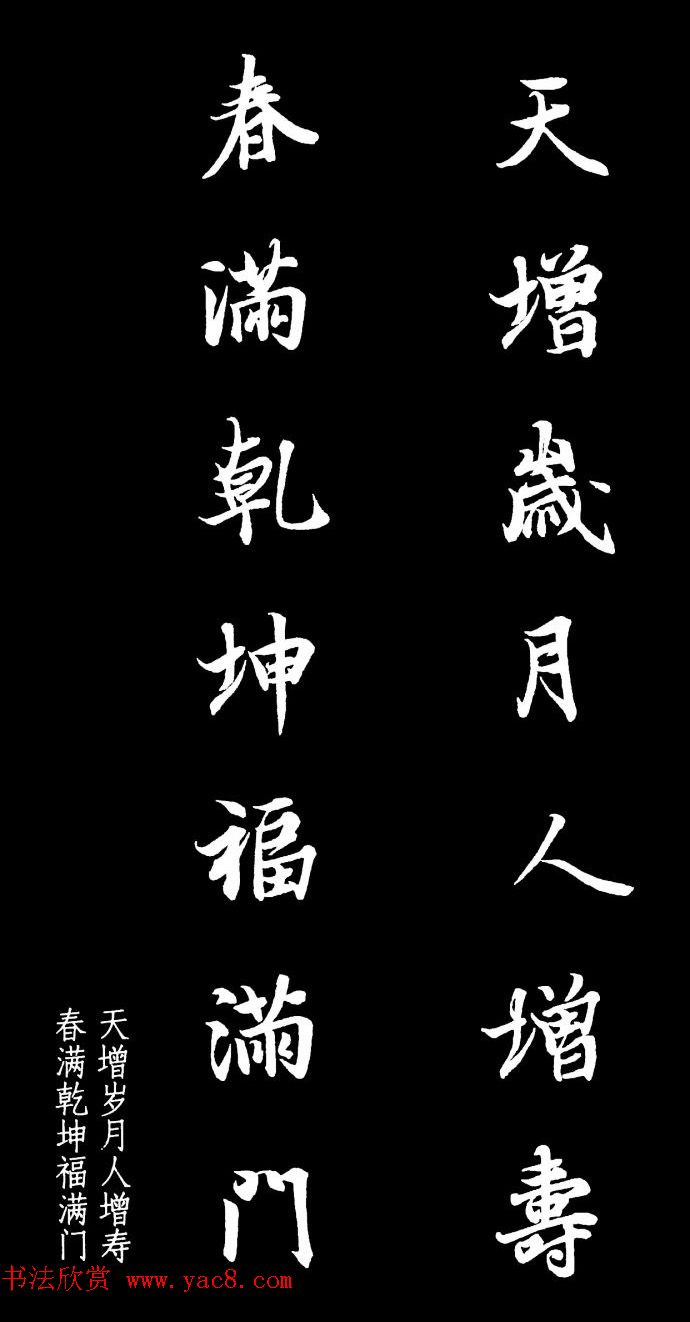 天增歲月人增壽
春滿乾坤福滿門
天增岁月人增寿
春满乾坤福满门
书法欣赏 www.yac8.com